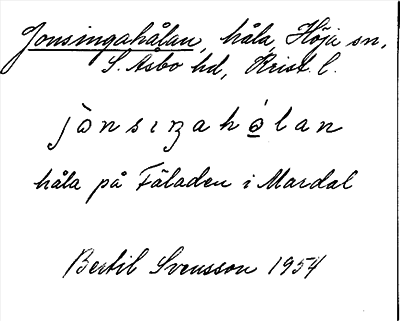 Jonsingahålan, håla, Höja sn,
S. Åsbo hd, Krist. l.
jònsıŋahålan
håla på Fäladen i Mardal
Bertil Svensson 1954